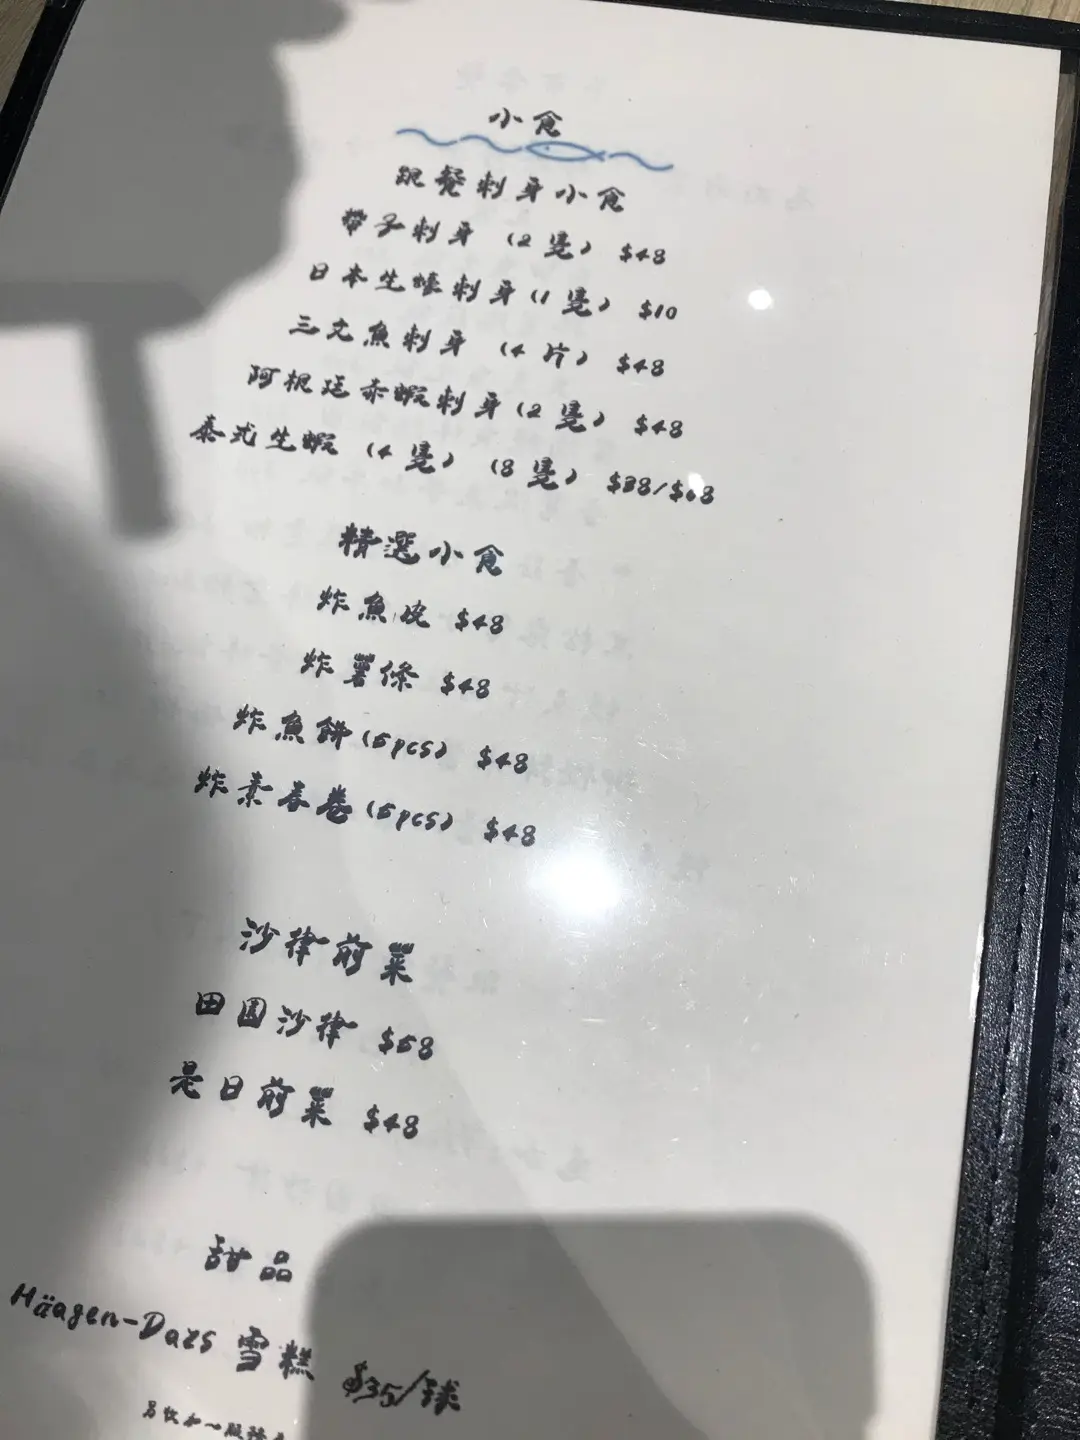 小食
跟餐刺身小食
帶子刺身 (2隻) $48
日本生蠔刺身(1隻) $10
三文魚刺身 (4片) $48
阿根廷赤蝦刺身(2隻) $48
泰式生蝦 (4隻) (8隻) $38/$68
精選小食
炸魚皮 $48
炸薯條 $48
炸魚餅(5pcs) $48
炸素春卷(5pcs) $48
沙律前菜
田園沙律 $58
是日前菜 $48
甜品
Häagen-Dazs 雪糕 $35/球
另收加一服務